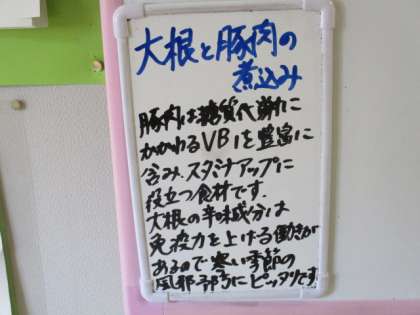 大根と豚肉の
煮込み
豚肉は糖質代謝に
かかわるVB1を豊富に
含み、スタミナアップに
役立つ食材です。
大根の辛味成分は
免疫力を上げる働きが
あるので寒い季節の
風邪予防にピッタリです